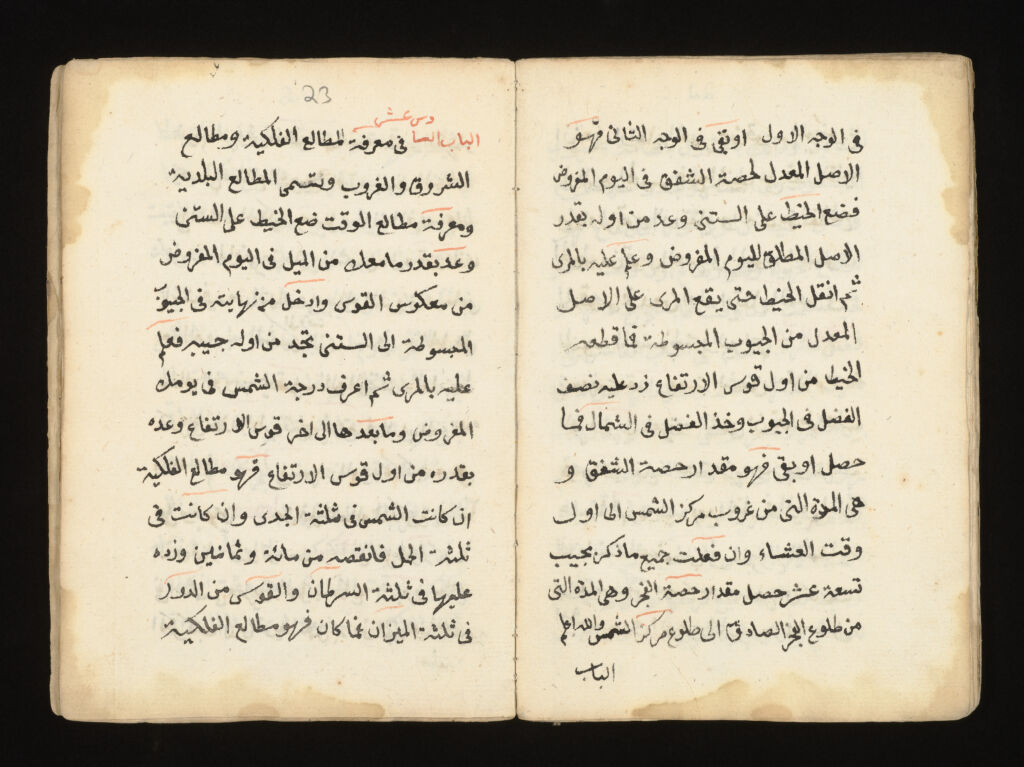 فى الوجه الاول او بقى فى الوجه الثانى فهو
الاصل المعدل لحصة الشفق فى اليوم المفروض
فضع الخيط على الستنى وعد من اوله بقدر
الاصل المطلق لليوم المفروض وعلم عليه بالمرى
ثم انقل الخيط حتى يقع المرى على الاصل
المعدل من الجيوب المبسوطة فما قطعه
الخيط من اول قوس الارتفاع زد عليه نصف
الفضل فى الجيوب وخذ الفضل فى الشمال فما
حصل او بقى فهو مقدار حصة الشفق و
هى المدة التى من غروب مركز الشمس الى اول
وقت العشاء وان فعلت جميع ما ذكر بجيب
تسعة عشر حصل مقدار حصة الفجر وهى المدة التى
من طلوع الفجر الصادق الى طلوع مركز الشمس والله اعلم
الباب
23
الباب السادس عشر فى معرفة المطالع الفلكية ومطالع
الشروق والغروب وتسمى المطالع البلدية
ومعرفة مطالع الوقت ضع الخيط على الستنى
وعد بقدر ما معك من الميل فى اليوم المفروض
من معكوس القوس وادخل من نهايته فى الجيوب
المبسوطة الى الستنى تجد من اوله جيبه فعلم
عليه بالمرى ثم اعرف درجة الشمس فى يومك
المفروض وما بعدها الى اخر قوس الارتفاع وعده
بقدره من اول قوس الارتفاع فهو مطالع الفلكية
ان كانت الشمس فى ثلثة الجدى وان كانت فى
ثلثة الحمل فانقصه من مائة وثمانين وزده
عليها فى ثلثة السرطان والقوس من الدور
فى ثلثة الميزان فما كان فهو مطالع الفلكية